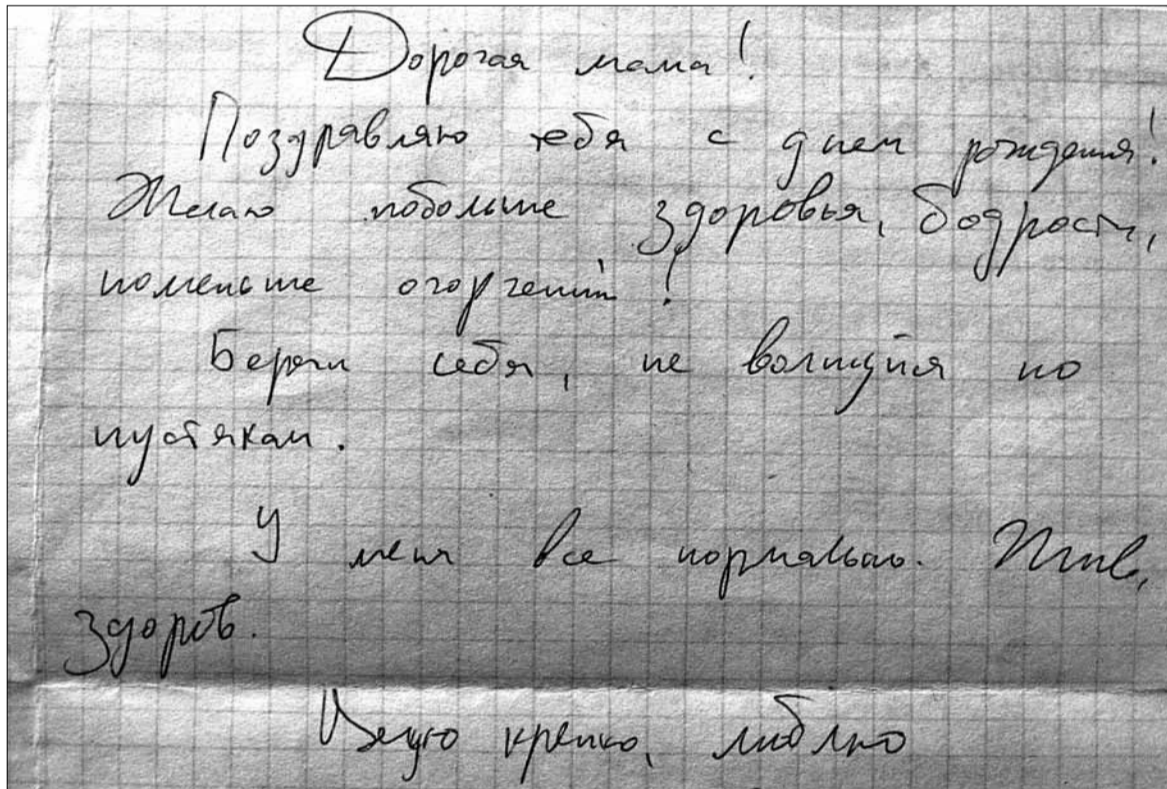 Дорогая мама!
Поздравляю тебя с днем рождения!
Желаю побольше здоровья, бодрости,
поменьше огорчений!
Береги себя, не волнуйся по
пустякам.
У меня все нормально. Жив,
здоров.
Целую крепко, люблю